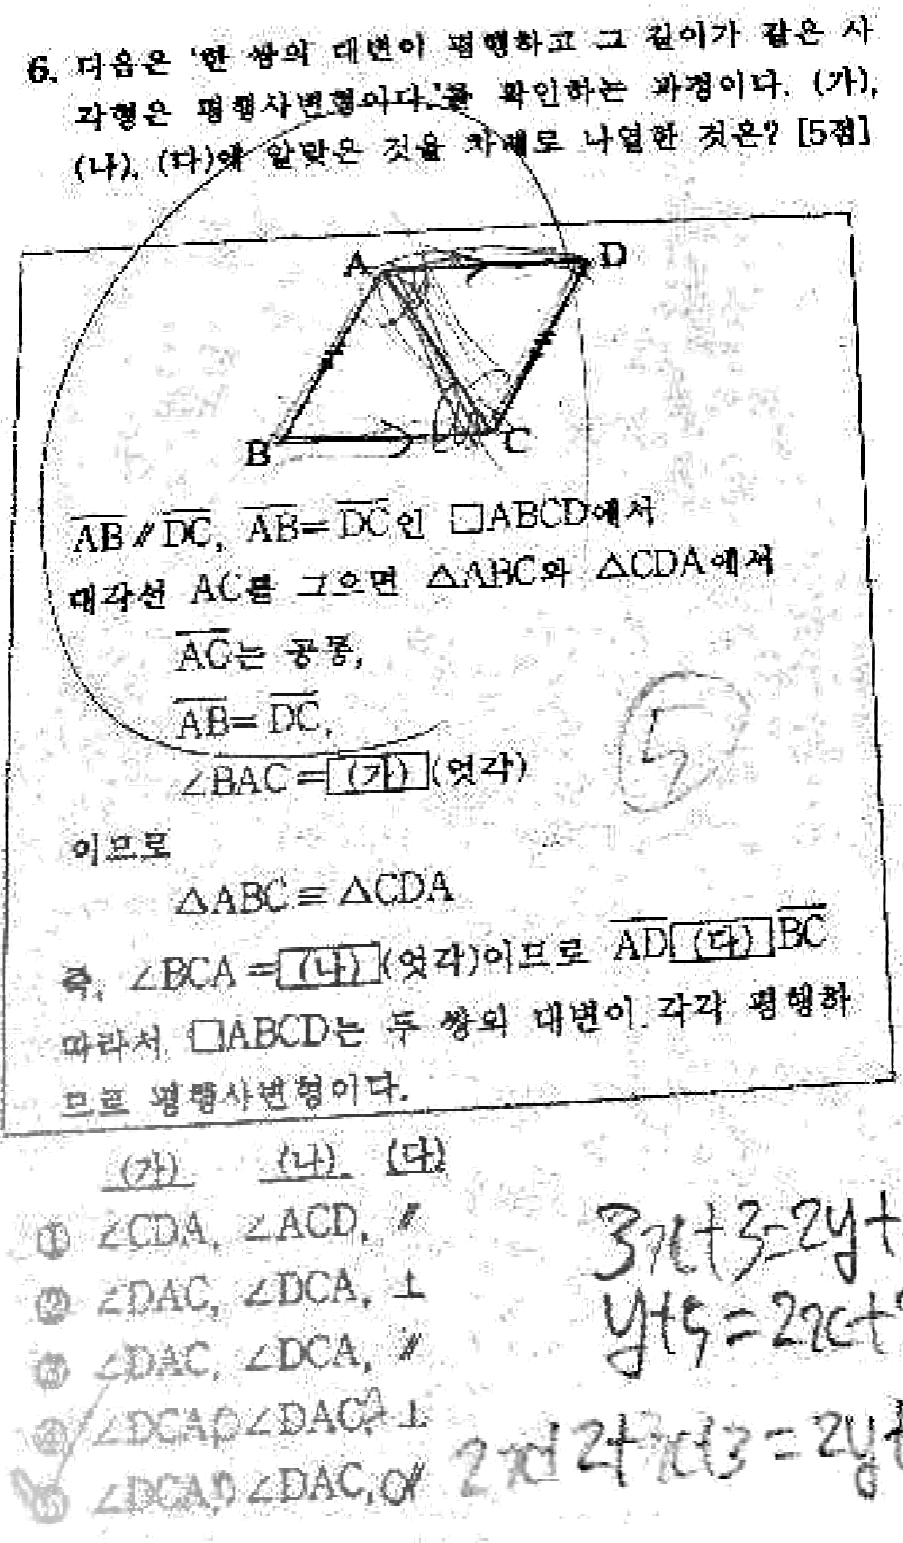 6. 다음은 '한 쌍의 대변이 평행하고 그 길이가 같은 사
각형은 평행사변형이다.'를 확인하는 과정이다. (가),
(나), (다)에 알맞은 것을 차례로 나열한 것은? [5점]
A D
B C
AB // DC, AB = DC인 □ABCD에서
대각선 AC를 그으면 △ABC와 △CDA에서
AC는 공통,
AB = DC,
∠BAC = (가) (엇각)
5
이므로
△ABC ≡ △CDA
즉, ∠BCA = (나) (엇각)이므로 AD (다) BC
따라서 □ABCD는 두 쌍의 대변이 각각 평행하
므로 평행사변형이다.
(가) (나) (다)
① ∠CDA, ∠ACD, //
② ∠DAC, ∠DCA, ⊥
③ ∠DAC, ∠DCA, //
④ ∠DCA, ∠DAC, ⊥
⑤ ∠DCA, ∠DAC, //
3x+3=2y+
y+5=2x+